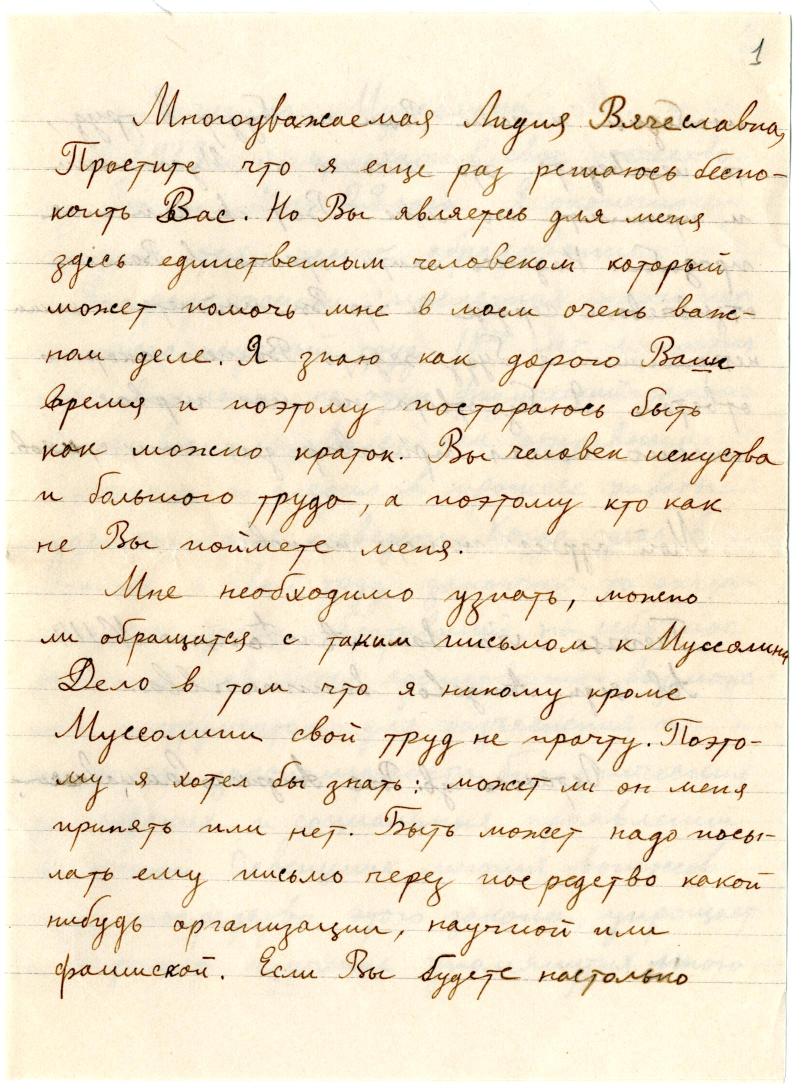 1
Многоуважаемая Лидия Вячеславна,
Простите что я еще раз решаюсь беспо-
коить Вас. Но Вы являетесь для меня
здесь единственным человеком который
может помочь мне в моем очень важ-
ном деле. Я знаю как дорого Ваше
время и поэтому постараюсь быть
как можно краток. Вы человек искуства
и большого труда, а поэтому кто как
не Вы поймете меня.
Мне необходимо узнать, можно
ли обращатся с таким письмом к Муссолини
Дело в том что я никому кроме
Муссолини свой труд не прочту. Поэто-
му я хотел бы знать: может ли он меня
принять или нет. Быть может надо посы-
лать ему письмо через посредство какой
нибудь организации, научной или
фашиской. Если Вы будете настолько